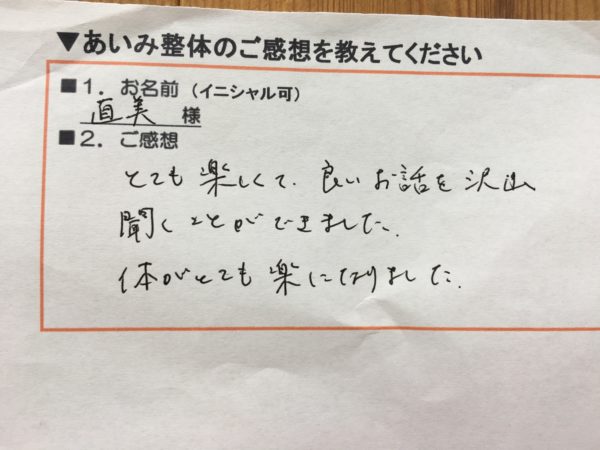 ▼あいみ整体のご感想を教えてください
■1．お名前（イニシャル可）
直美 様
■2．ご感想
とても楽しくて、良いお話を沢山
聞くことができました。
体がとても楽になりました。